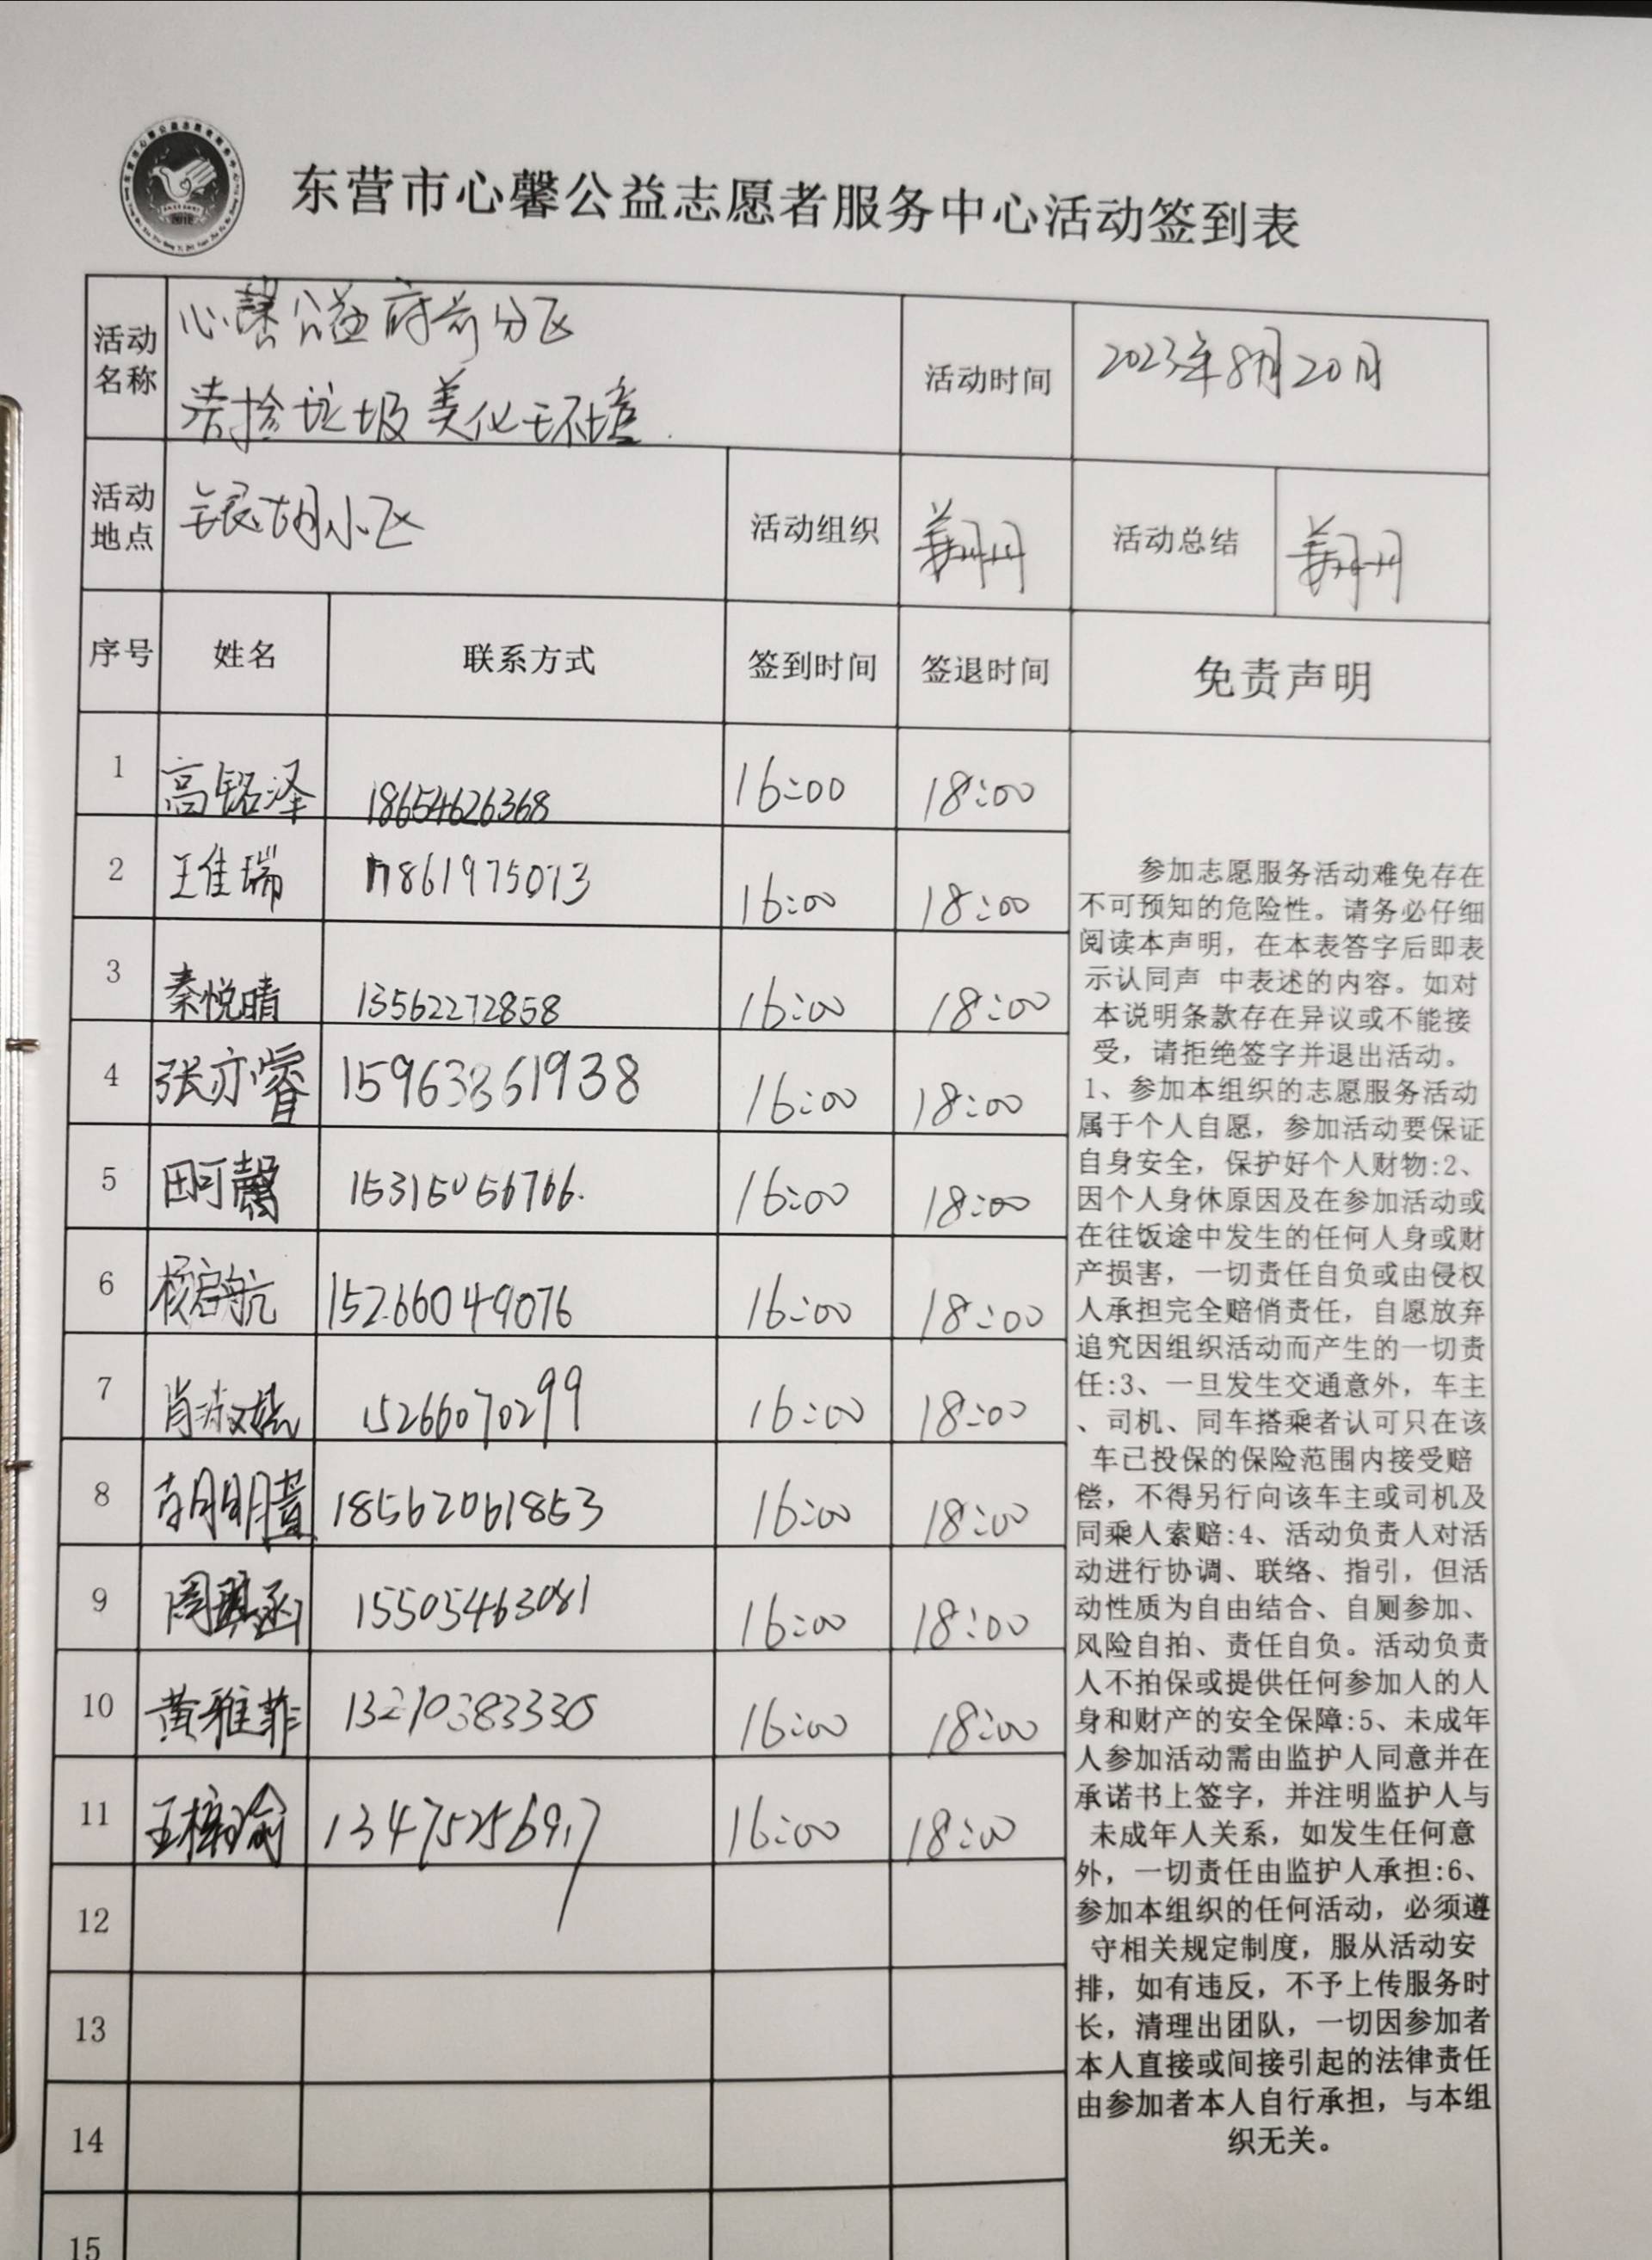 东营市心馨公益志愿者服务中心活动签到表
活动名称 心馨公益府前分区
清捡垃圾美化环境
活动时间 2023年8月20日
活动地点 银湖小区 活动组织 姜丹丹 活动总结 姜丹丹
序号 姓名 联系方式 签到时间 签退时间 免责声明
1 高铭泽 18654626368 16:00 18:00
2 王佳瑞 17861975073 16:00 18:00
3 秦悦晴 13562272858 16:00 18:00
4 张亦睿 15963861938 16:00 18:00
5 田可馨 15315056766. 16:00 18:00
6 杨启航 15266049076 16:00 18:00
7 15266070299 16:00 18:00
8 胡明萱 18562061853 16:00 18:00
9 周琪函 15505463081 16:00 18:00
10 黄雅菲 13210383330 16:00 18:00
11 王梓瑜 13475256917 16:00 18:00
12
13
14
15
参加志愿服务活动难免存在
不可预知的危险性。请务必仔细
阅读本声明，在本表答字后即表
示认同声 中表述的内容。如对
本说明条款存在异议或不能接
受，请拒绝签字并退出活动。
1、参加本组织的志愿服务活动
属于个人自愿，参加活动要保证
自身安全，保护好个人财物:2、
因个人身休原因及在参加活动或
在往饭途中发生的任何人身或财
产损害，一切责任自负或由侵权
人承担完全赔俏责任，自愿放弃
追究因组织活动而产生的一切责
任:3、一旦发生交通意外，车主
、司机、同车搭乘者认可只在该
车已投保的保险范围内接受赔
偿，不得另行向该车主或司机及
同乘人索赔:4、活动负责人对活
动进行协调、联络、指引，但活
动性质为自由结合、自厕参加、
风险自拍、责任自负。活动负责
人不拍保或提供任何参加人的人
身和财产的安全保障:5、未成年
人参加活动需由监护人同意并在
承诺书上签字，并注明监护人与
未成年人关系，如发生任何意
外，一切责任由监护人承担:6、
参加本组织的任何活动，必须遵
守相关规定制度，服从活动安
排，如有违反，不予上传服务时
长，清理出团队，一切因参加者
本人直接或间接引起的法律责任
由参加者本人自行承担，与本组
织无关。